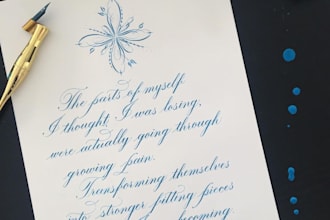 The parts of myself
I thought I was losing,
were actually going through
growing pain.
Transforming themselves
into stronger fitting pieces
becoming.